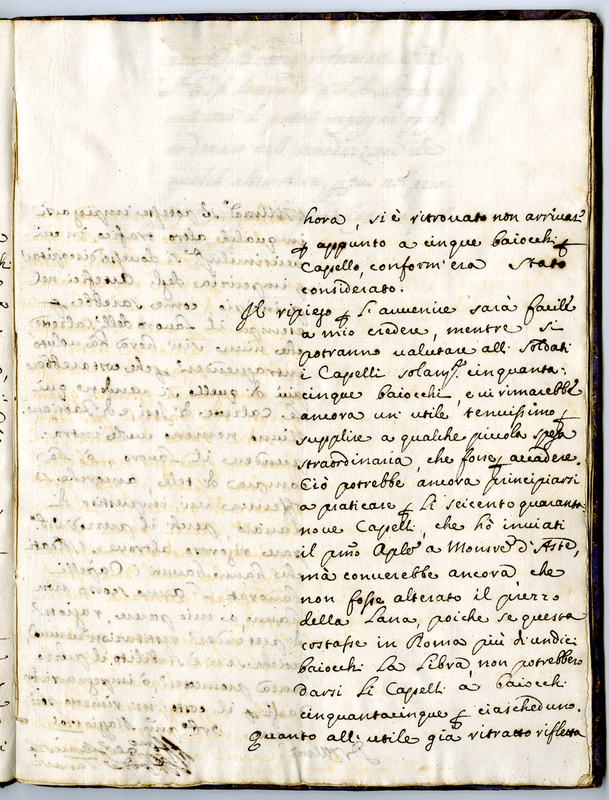 hora, si è ritrovato non arrivar
p appunto a cinque baiocchi p
Capello, conform'era stato
considerato.
Il ripiego p l'avvenire sarà facile
a mio credere, mentre si
potranno valutare alli Soldati
i Capelli solam.te cinquanta:
cinque baiocchi, e vi rimarebbe
ancora un'utile tenuissimo p
supplire a qualche piccola spesa
straordinaria, che fosse p accadere.
Ciò potrebbe ancora principiarsi
a praticare p li seicento quaranta:
nove Capelli, che hò inviati
il pmo Aple à Monsre d'Aste,
mà converebbe ancora, che
non fosse alterato il prezzo
della Lana, poiche se questa
costasse in Roma più d'undici
baiocchi la libra, non potrebbero
darsi li Capelli à baiocchi
cinquantacinque p ciascheduno.
Quanto all'utile già ritratto rifletta